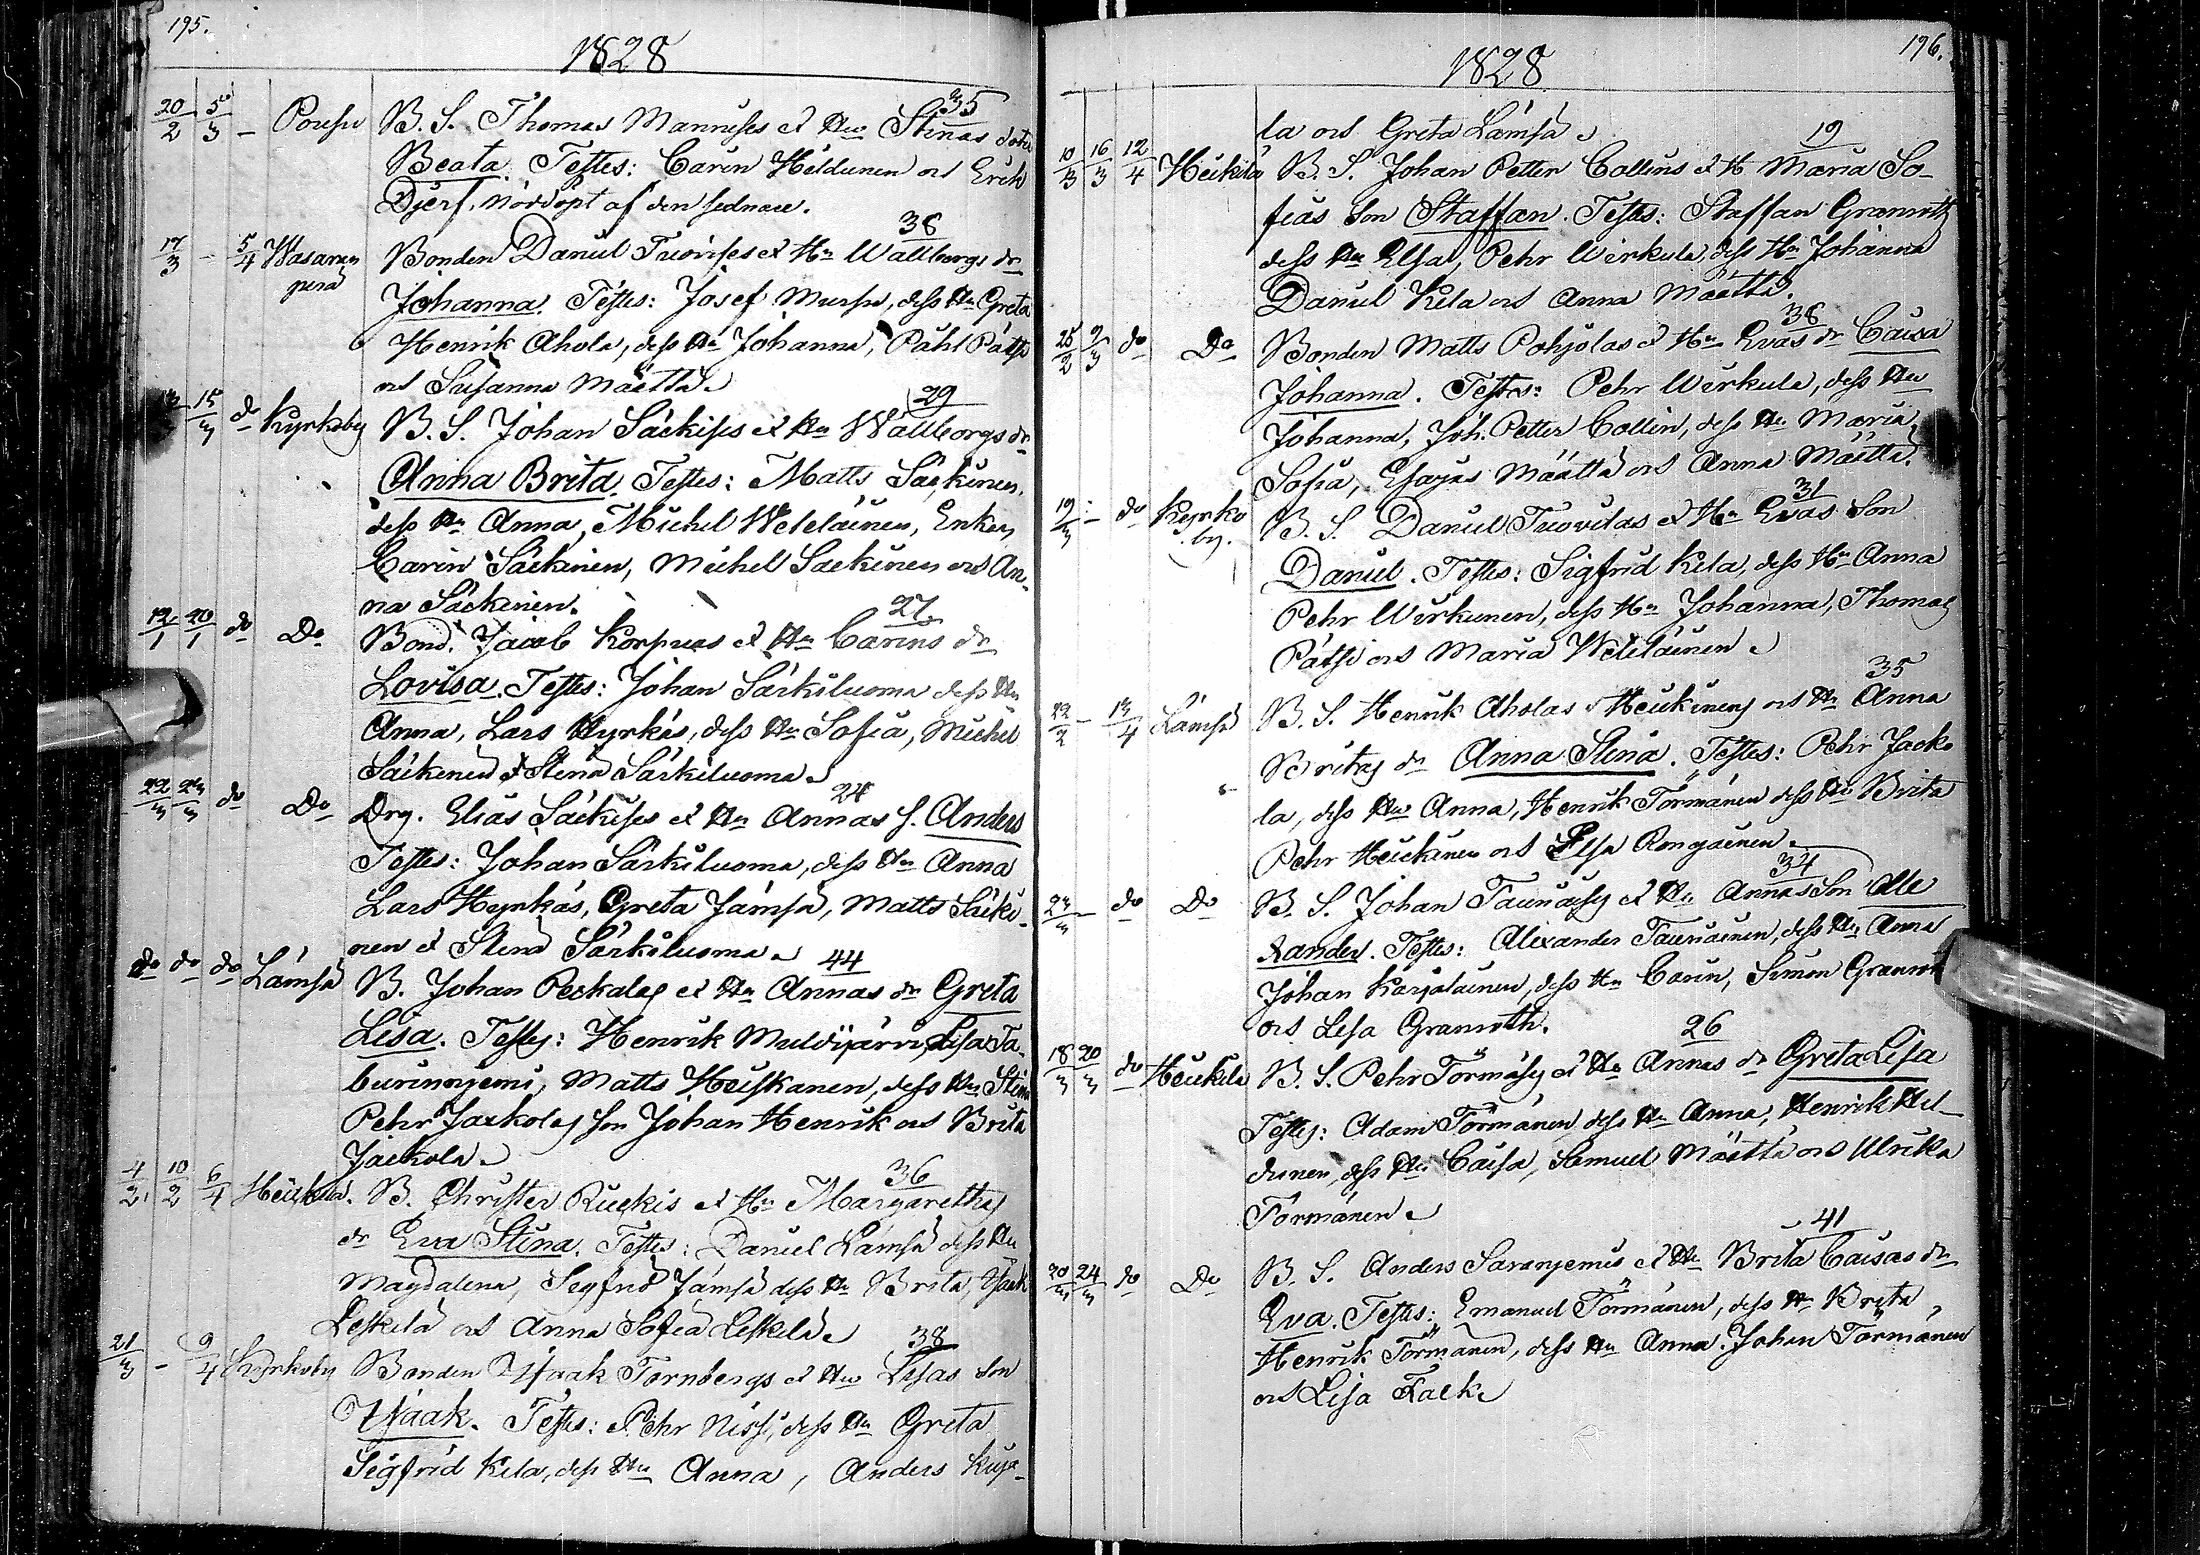 195.
1828
20/2 5/3 – Pousu B. S. Thomas Mannises et Hu Stinas doter 35
Beata. Testes: Carin Hildunen och Erik
Djerf, nöddöpt af den sednare.
17/3 – 5/4 Wasaran perä Bonden Daniel Tuovises et Hu Wallborgs dr 38
Johanna. Testes: Josef Mursu, dess Hu Greta
Henrik Ahola, dess Hu Johanna, Påhl Pätsi
och Susanna Määttä.
15/3 do Kyrkoby B. S. Johan Säckises et Hu Wallborgs dr 29
Anna Brita. Testes: Matts Säckinen,
dess Hu Anna, Michel Weteläinen, Enkan
Carin Säckinen, Michel Säckinen och An-
na Säckinen.
12/1 20/1 do Do Bond. Jacob Korpuas et Hu Carins dr 27
Lovisa. Testes: Johan Särkiluoma dess Hu
Anna, Lars Hyrkäs, dess Hu Sofia, Michel
Säckinen et Stina Särkiluoma.
22/3 23/3 do Do Drg. Elias Säckises et Hu Annas s. Anders 24
Testes: Johan Särkiluoma, dess Hu Anna
Lars Hyrkäs, Greta Jämsä, Matts Säcki-
nen et Stina Särkiluoma.
do do do Lämsä B. Johan Peckalas et Hu Annas dr Greta 44
Lisa. Testes: Henrik Muldijärvi, Lisa Ta-
burinnjemi, Matts Heiskanen, dess Hu Stina
Pehr Jaakolas son Johan Henrik och Brita
Jaakola.
4/2 10/2 6/4 Heikkilä. B. Christer Ruckis et Hu Margarethas 36
dr Eva Stina. Testes: Daniel Lämsä dess Hu
Magdalena, Segfrid Jämsä dess Hu Brita, Isaak
Leskelä och Anna Sofia Leskelä.
21/3 – 9/4 Kyrkoby Bonden Isaak Tornbergs et Hu Lisas son 38
Isaak. Testes: Pehr Nissi, dess Hu Greta
Sigfrid Kela, dess Hu Anna, Anders Kuja-
196.
1828
la och Greta Lämsä.
10/3 16/3 12/4 Heikkilä B. S. Johan Petter Collins et H Maria So- 19
fias Son Staffan. Testes: Staffan Granroth
dess Hu Elsa, Pehr Wirkula, dess Hu Johanna
Daniel Kela och Anna Määttä.
25/2 9/3 do Do Bonden Matts Pohjolas et Hu Evas dr Caisa 38
Johanna. Testes: Pehr Wirkula, dess Hu
Johanna, Joh. Petter Collin, dess Hu Maria
Sofia, Esajas Määttä och Anna Määttä.
19/3 – do Kyrko by. B. S. Daniel Tuovilas et Hu Evas Son 31
Daniel. Testes: Sigfrid Kela, dess Hu Anna
Pehr Wirkunen, dess Hu Johanna, Thomas
Pätsi och Maria Weteläinen.
22/2 – 13/4 Lämsä B. S. Henrik Aholas l. Heickinens och Hu Anna 35
Britas dr Anna Stina. Testes: Pehr Jaako
la, dess Hu Anna, Henrik Törmänen dess Hu Brita
Pehr Heickinen och Elsa Rongainen.
23/3 – do Do B. S. Johan Taunäises et Hu Annas Son Alle 34
xander. Testes: Alexander Taunainen, dess Hu Anna
Johan Karjalainen, dess Hu Carin, Simon Granroth
och Lisa Granroth.
18/3 20/3 do Heikkilä B. S. Pehr Törmäses et Hu Annas dr Greta Lisa 26
Testes: Adam Törmänen dess Hu Anna, Henrik Hil-
dunen, dess Hu Caisa, Samuel Määttä och Ulrika
Törmänen.
20/3 24/3 do Do B. S. Anders Saranjemis et Hu Brita Caisas dr 41
Eva. Testes: Emanuel Törmänen, dess Hu Brita,
Henrik Törmänen, dess Hu Anna. Johan Törmänen
och Lisa Falk.